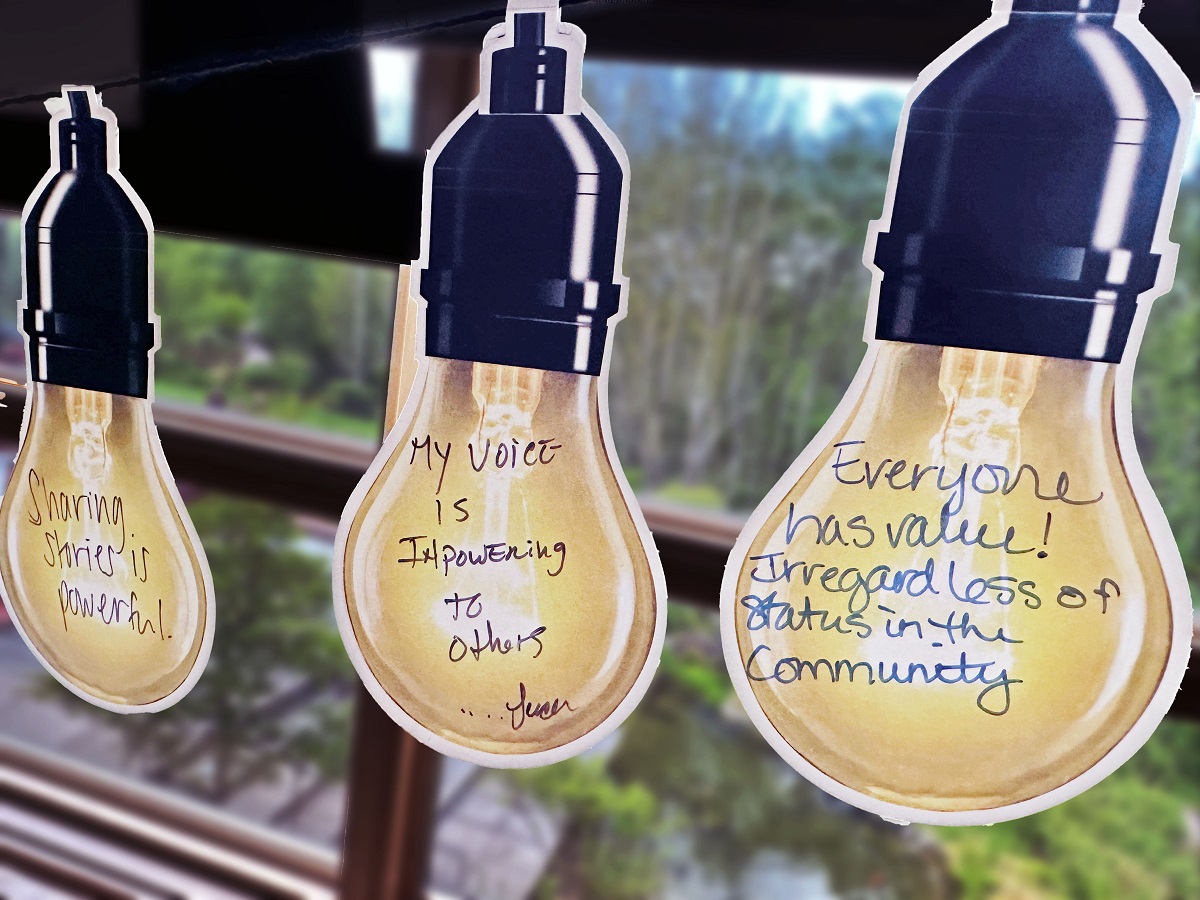 Sharing
stories is
powerful.
My VOICE
is
Impowering
to
others
Everyone
has value!
Irregardless of
status in the
Community